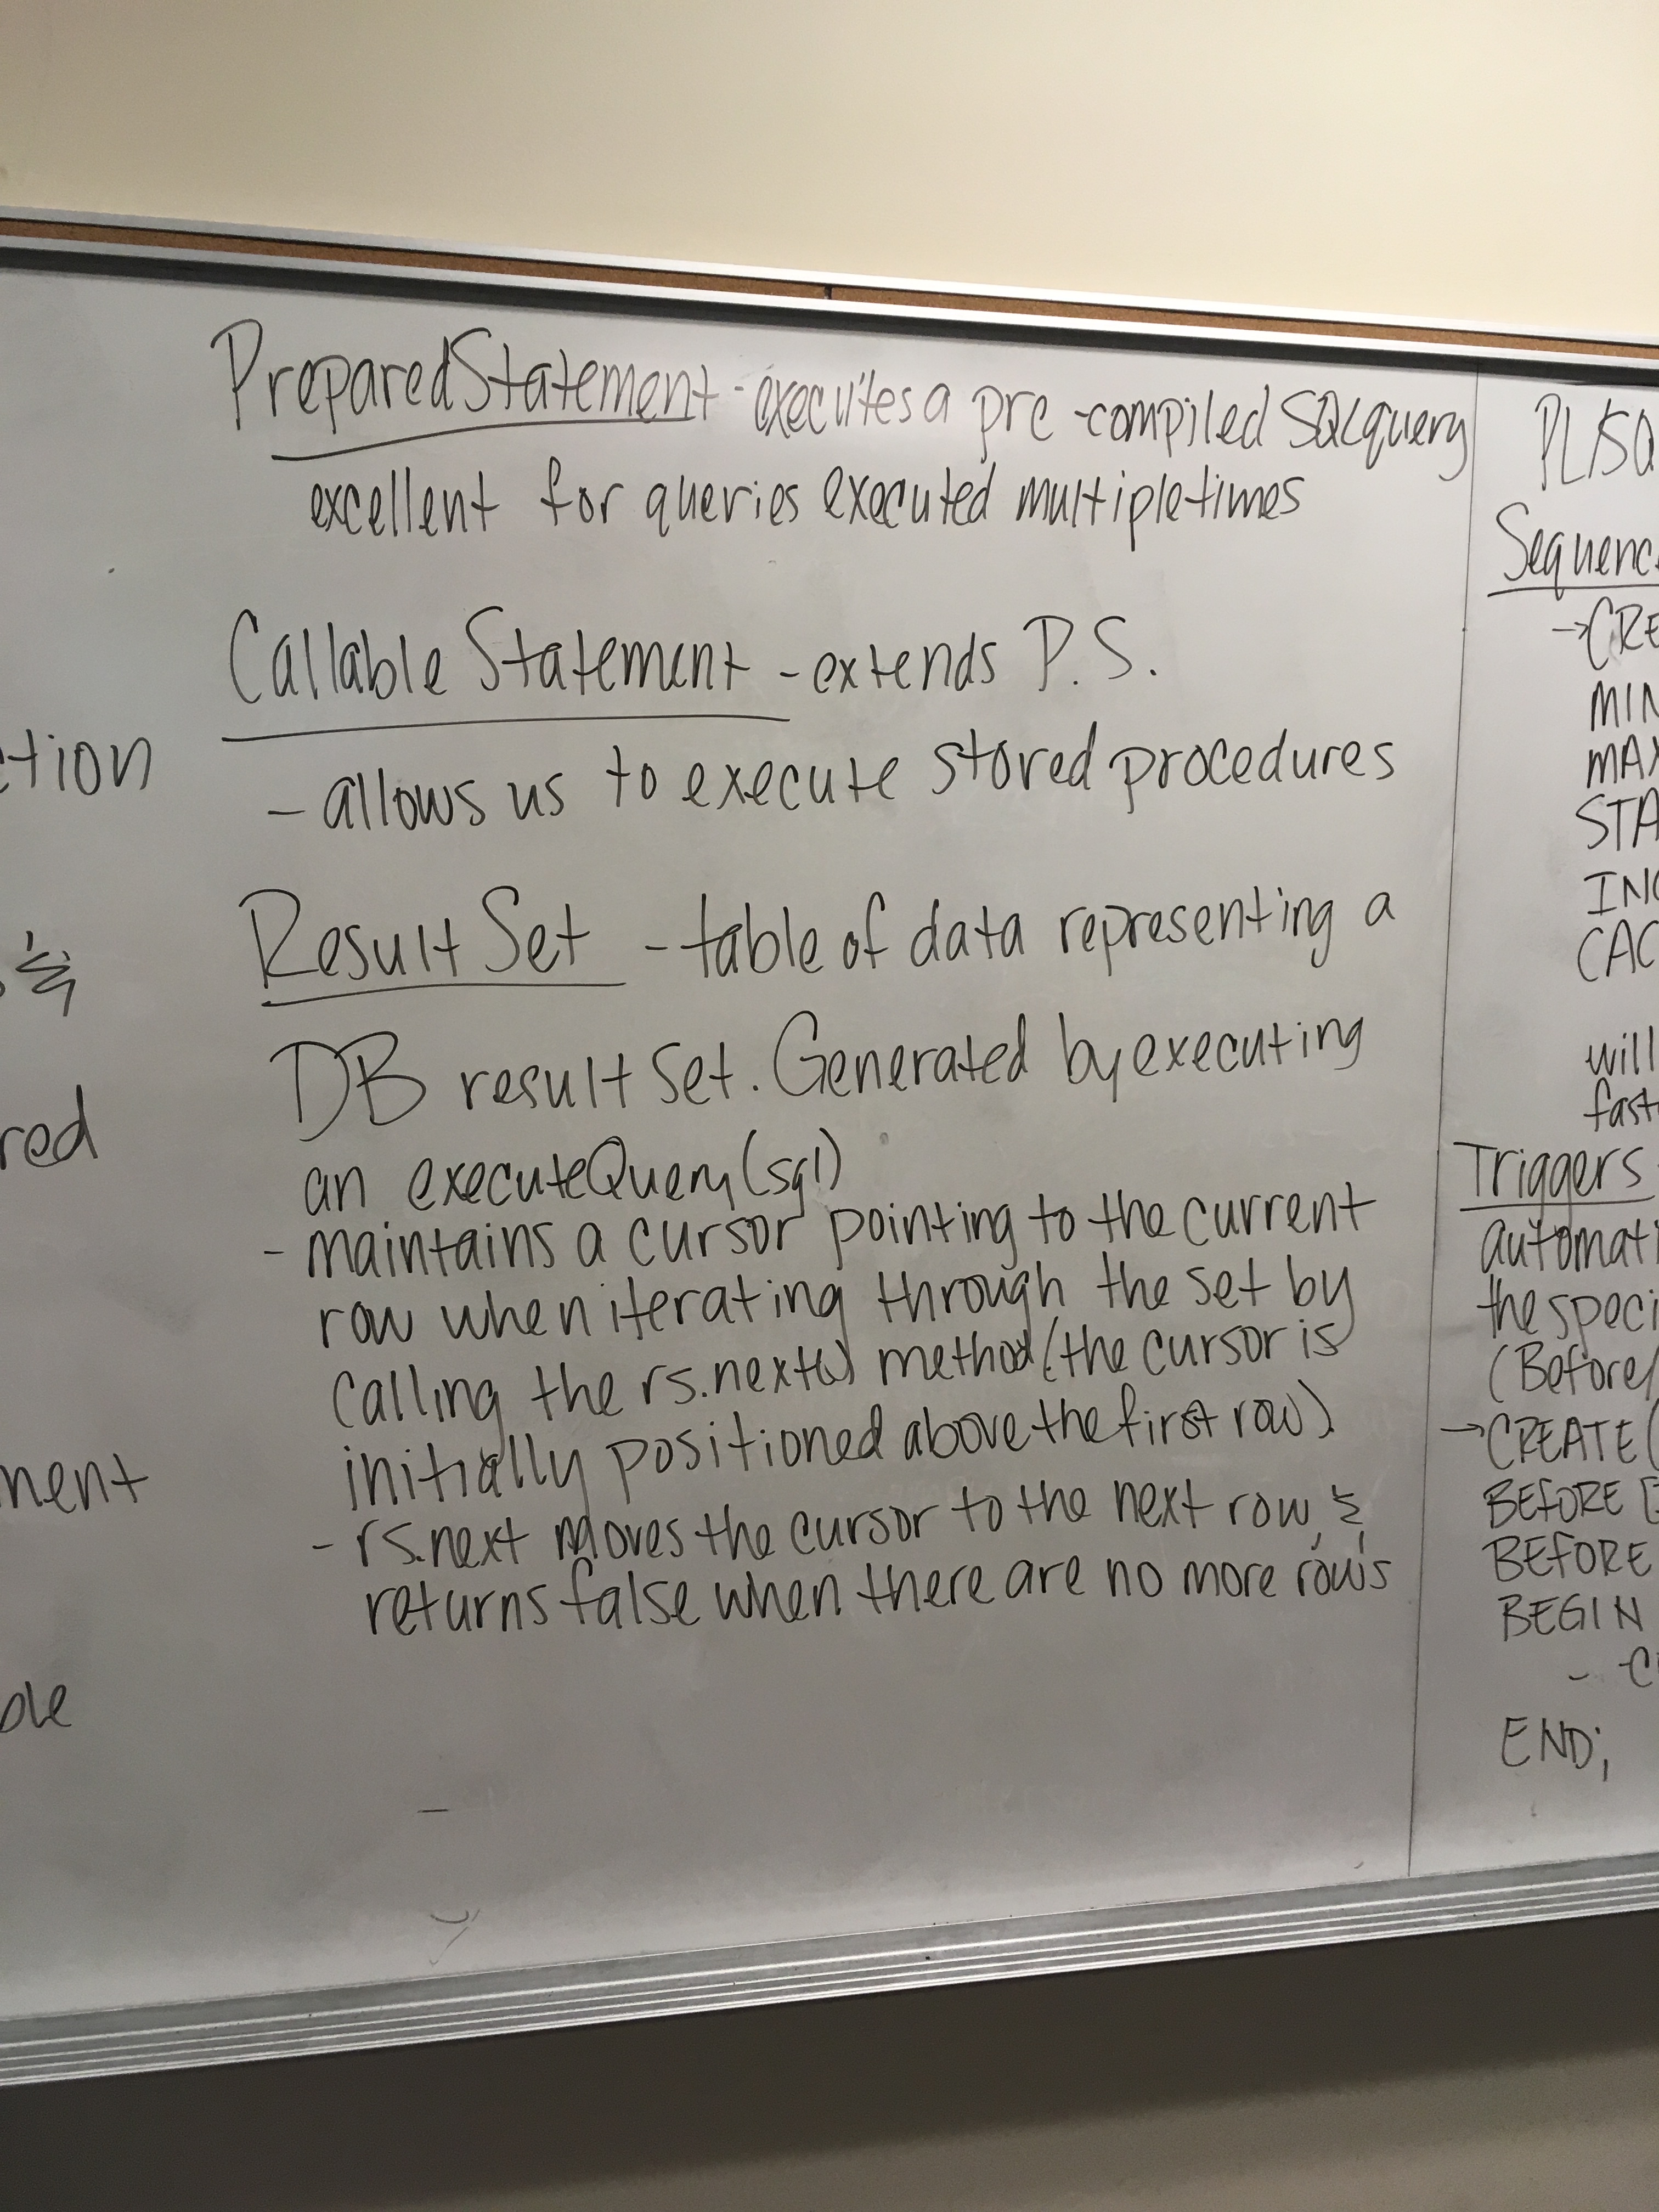 PreparedStatement - executes a pre-compiled SQL query
excellent for queries executed multiple times
Callable Statement - extends P.S.
- allows us to execute stored procedures
Result Set - table of data representing a
DB result set. Generated by executing
an executeQuery(sql)
- maintains a cursor pointing to the current
row when iterating through the set by
calling the rs.next() method (the cursor is
initially positioned above the first row).
- rs.next moves the cursor to the next row, &
returns false when there are no more rows
ction
&
red
ment
ble
PL/SQ
Sequence
→CRE
MIN
MAX
STA
INC
CAC
will
fast
Triggers
automati
the speci
(Before/
→CREATE (
BEFORE [
BEFORE
BEGIN
- C
END;